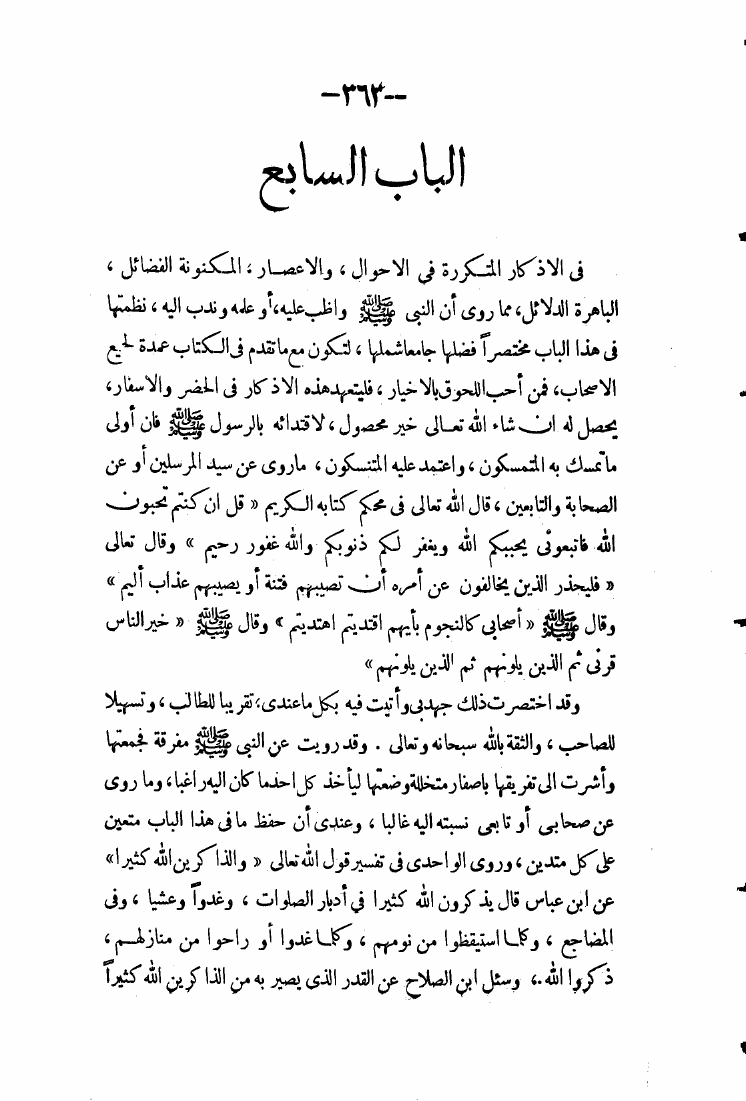 --٣٦٣--
الباب السابع
فى الاذكار المتكررة في الاحوال ، والاعصار ، المكنونة الفضائل ،
الباهرة الدلائل، مما روى أن النبى ﷺ واظب عليه، أو علمه وندب اليه ، نظمتها
فى هذا الباب مختصراً فضلها جامعا شملها ، لتكون مع ما تقدم فى الكتاب عمدة لجميع
الاصحاب، فمن أحب اللحوق بالاخيار ، فليتعهد هذه الاذكار فى الحضر والاسفار،
يحصل له ان شاء الله تعالى خير محصول ، لاقتدائه بالرسول ﷺ فان أولى
ما تمسك به المتمسكون ، واعتمد عليه المتنسكون ، ماروى عن سيد المرسلين أو عن
الصحابة والتابعين ، قال الله تعالى فى محكم كتابه الكريم « قل ان كنتم تحبون
الله فاتبعونى يحببكم الله ويغفر لكم ذنوبكم والله غفور رحيم » وقال تعالى
« فليحذر الذين يخالفون عن أمره أن تصيبهم فتنة أو يصيبهم عذاب أليم »
وقال ﷺ « أصحابي كالنجوم بأيهم اقتديتم اهتديتم » وقال ﷺ « خير الناس
قرنى ثم الذين يلونهم ثم الذين يلونهم »
وقد اختصرت ذلك جهدبي وأتيت فيه بكل ما عندى؛ تقريبا للطالب ، وتسهيلا
للصاحب ، والثقة بالله سبحانه وتعالى . وقد رويت عن النبى ﷺ مفرقة فجمعتها
وأشرت الى تفريقها باصفار متخللة وضعتها ليأخذ كل احد ما كان اليه راغبا، وما روى
عن صحابى أو تابعى نسبته اليه غالبا ، وعندى أن حفظ ما فى هذا الباب متعين
على كل متدين ، وروى الواحدى فى تفسير قول الله تعالى « والذاكرين الله كثيرا»
عن ابن عباس قال يذكرون الله كثيرا في أدبار الصلوات ، وغدواً وعشيا ، وفى
المضاجع ، وكلما استيقظوا من نومهم ، وكلما غدوا أو راحوا من منازلهم ،
ذكروا الله .، وسئل ابن الصلاح عن القدر الذى يصير به من الذاكرين الله كثيراً